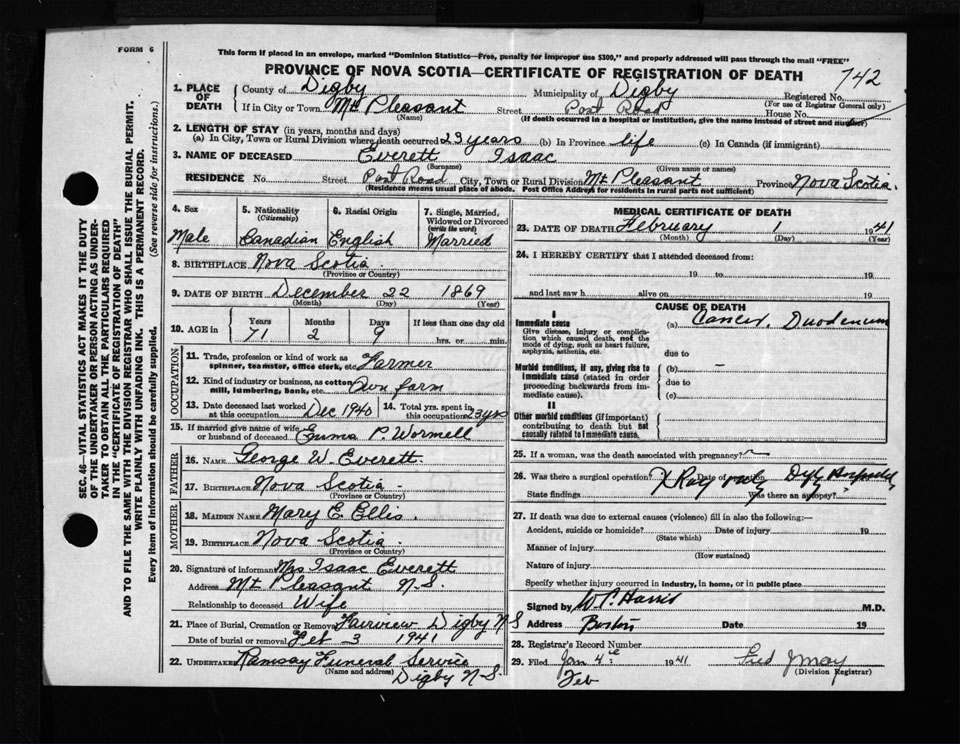 FORM 6
This form if placed in an envelope, marked "Dominion Statistics—Free, penalty for improper use $300," and properly addressed will pass through the mail "FREE"
PROVINCE OF NOVA SCOTIA—CERTIFICATE OF REGISTRATION OF DEATH 742
1. PLACE OF DEATH
County of Digby Municipality of Digby Registered No.
(For use of Registrar General only)
If in City or Town Mt Pleasant Street Post Road House No.
(Name) (If death occurred in a hospital or institution, give the name instead of street and number)
2. LENGTH OF STAY (in years, months and days)
(a) In City, Town or Rural Division where death occurred 23 years (b) In Province life (c) In Canada (if immigrant)
3. NAME OF DECEASED Everett Isaac
(Surname) (Given name or names)
RESIDENCE No. Street Post Road City, Town or Rural Division Mt Pleasant Province Nova Scotia.
(Residence means usual place of abode. Post Office Address for residents in rural parts not sufficient)
4. Sex 5. Nationality (Citizenship) 6. Racial Origin 7. Single, Married, Widowed or Divorced (write the word)
Male Canadian English Married
8. BIRTHPLACE Nova Scotia
(Province or Country)
9. DATE OF BIRTH December 22 1869
(Month) (Day) (Year)
10. AGE in Years Months Days If less than one day old
71 2 9 hrs. or min.
OCCUPATION
11. Trade, profession or kind of work as spinner, teamster, office clerk, etc. Farmer
12. Kind of industry or business, as cotton mill, lumbering, bank, etc. Own farm
13. Date deceased last worked at this occupation Dec 1940 14. Total yrs. spent in this occupation 23 yrs
15. If married give name of wife or husband of deceased Emma P. Wormell
FATHER
16. NAME George W. Everett.
17. BIRTHPLACE Nova Scotia
(Province or Country)
MOTHER
18. MAIDEN NAME Mary E Ellis.
19. BIRTHPLACE Nova Scotia
(Province or Country)
20. Signature of informant Mrs Isaac Everett
Address Mt Pleasant N.S.
Relationship to deceased Wife
21. Place of Burial, Cremation or Removal Fairview Digby N S
Date of burial or removal Feb 3 1941
22. UNDERTAKER Ramsay Funeral Service
(Name and address) Digby N.S.
MEDICAL CERTIFICATE OF DEATH
23. DATE OF DEATH February 1 1941
(Month) (Day) (Year)
24. I HEREBY CERTIFY that I attended deceased from:
19 to 19
and last saw h alive on 19
CAUSE OF DEATH
I
Immediate cause (a) Cancer. Duodenum
Give disease, injury or complication which caused death, not the mode of dying, such as heart failure, asphyxia, asthenia, etc.
due to
Morbid conditions, if any, giving rise to immediate cause (stated in order proceeding backwards from immediate cause).
(b) –
due to
(c)
II
Other morbid conditions (if important) contributing to death but not causally related to immediate cause.
25. If a woman, was the death associated with pregnancy?
26. Was there a surgical operation? X Ray only Date of operation Digby Hospital
State findings Was there an autopsy?
27. If death was due to external causes (violence) fill in also the following:—
Accident, suicide or homicide? Date of injury 19
(State which)
Manner of injury
(How sustained)
Nature of injury
Specify whether injury occurred in industry, in home, or in public place
Signed by W. C. Harris M.D.
Address Date 19
28. Registrar's Record Number
29. Filed Jan 4th 1941 Fred J May
Feb (Division Registrar)
SEC. 46—VITAL STATISTICS ACT MAKES IT THE DUTY
OF THE UNDERTAKER OR PERSON ACTING AS UNDERTAKER
TO OBTAIN ALL THE PARTICULARS REQUIRED
IN THE "CERTIFICATE OF REGISTRATION OF DEATH"
AND TO FILE THE SAME WITH THE DIVISION REGISTRAR WHO SHALL ISSUE THE BURIAL PERMIT.
WRITE PLAINLY WITH UNFADING INK. THIS IS A PERMANENT RECORD.
Every item of information should be carefully supplied. (See reverse side for instructions.)